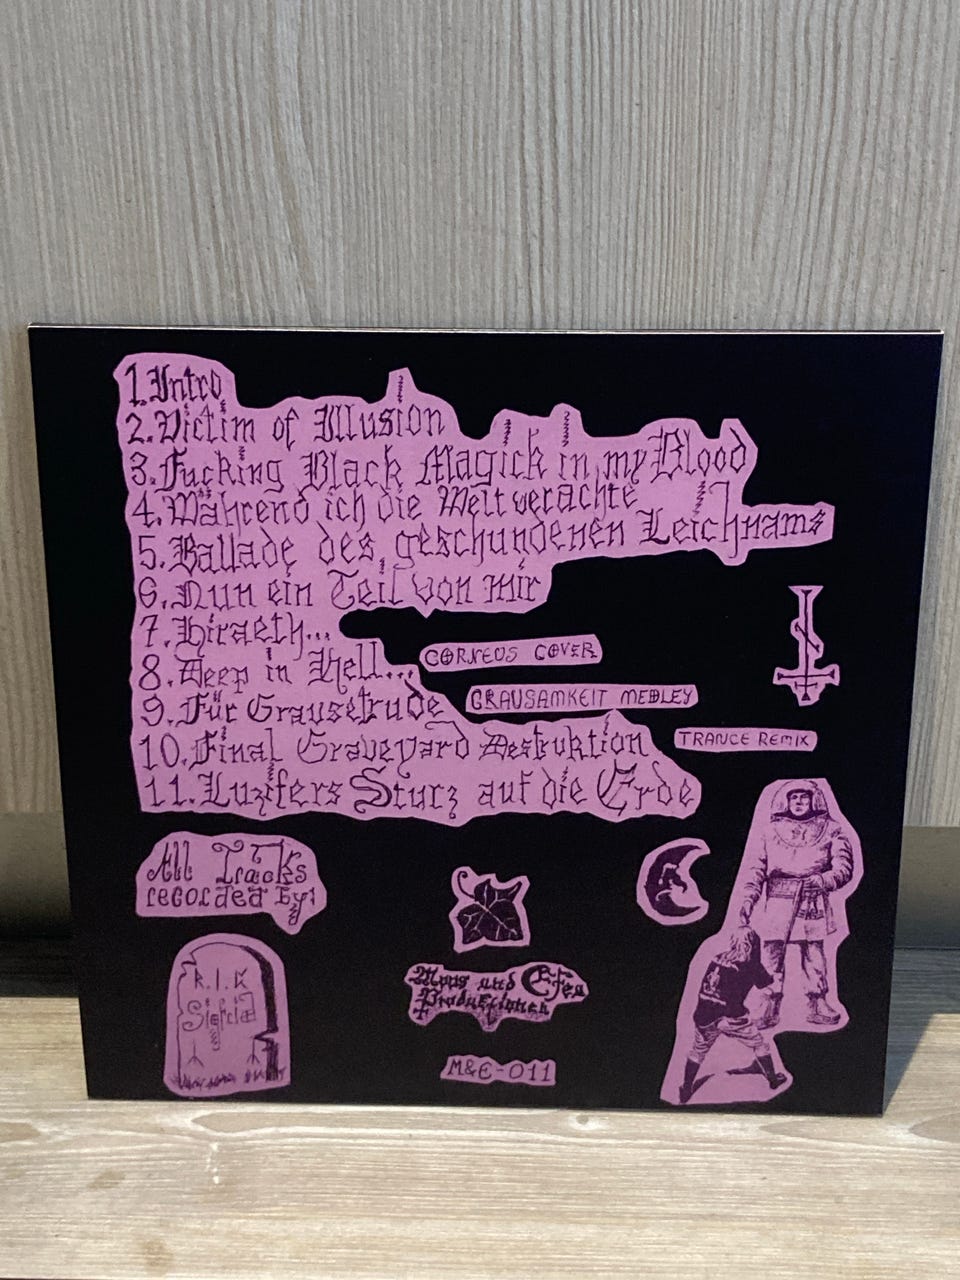 1. Intro
2. Victim of Illusion
3. Fucking Black Magick in my Blood
4. Während ich die Welt verachte
5. Ballade des geschundenen Leichnams
6. Nun ein Teil von mir
7. Hiraeth...
8. Deep in Hell...
CORNEUS COVER
9. Für Grausetrude
GRAUSAMKEIT MEDLEY
10. Final Graveyard Destruktion
TRANCE REMIX
11. Luzifers Sturz auf die Erde
All Tracks
recorded by:
Moos und Efeu
Produktionen
R.I.P.
M&E-011